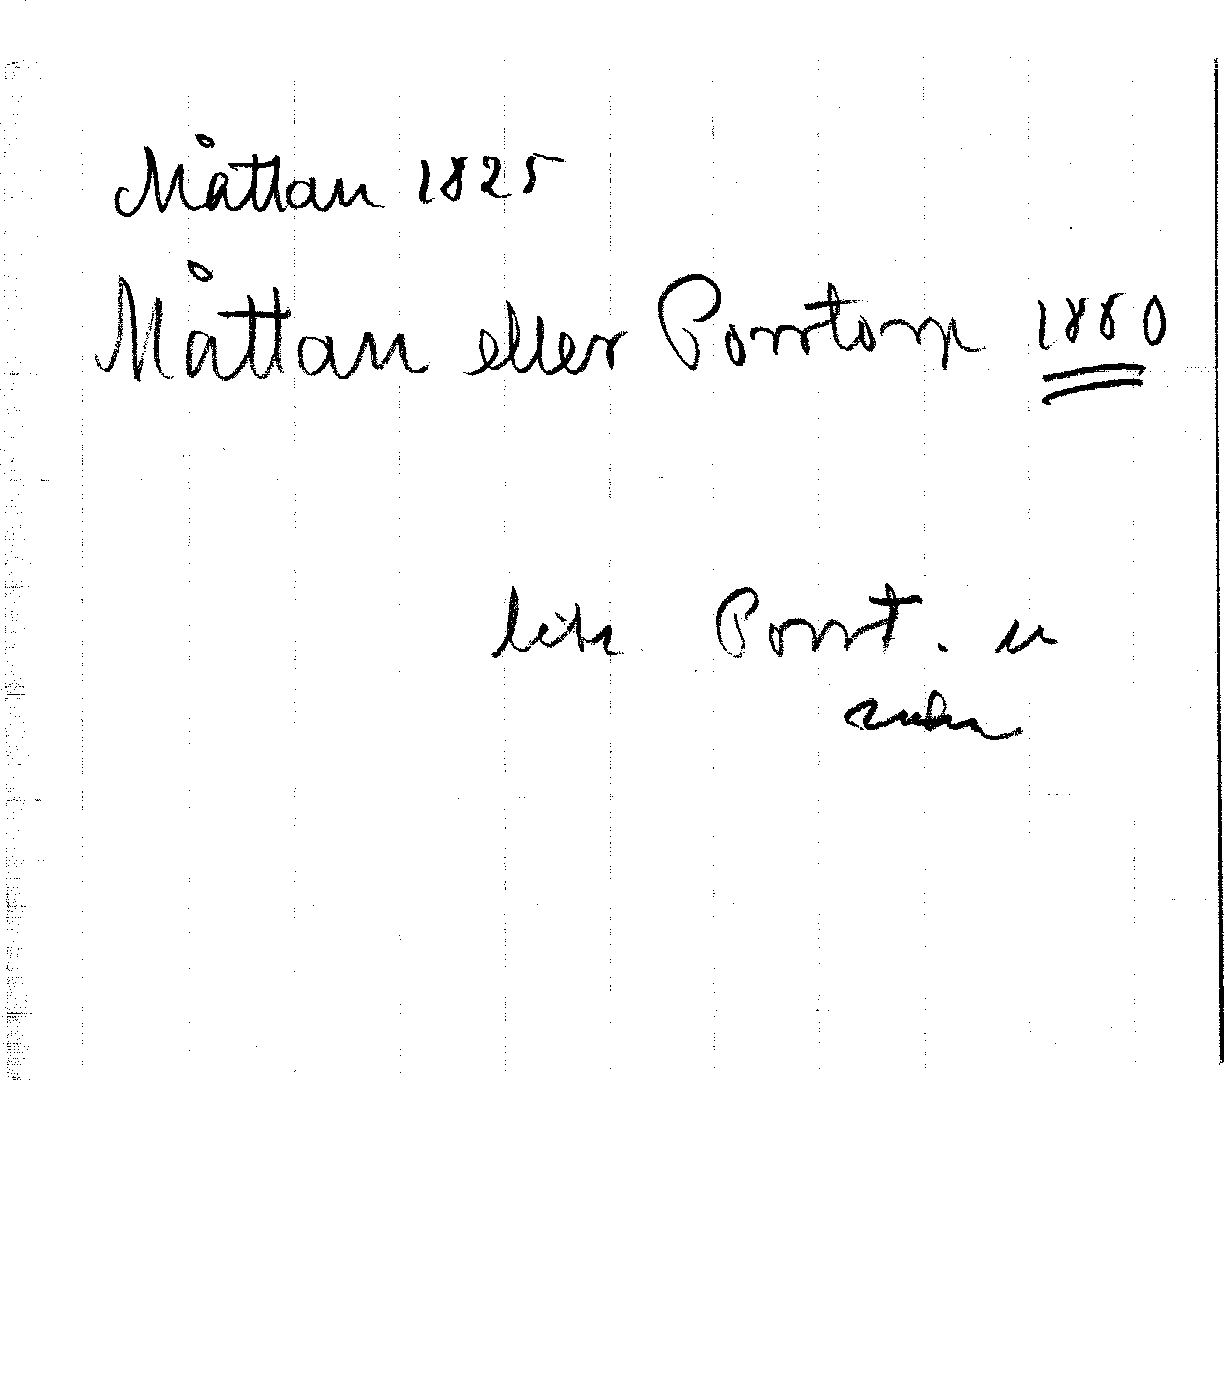 Måttan 1825
Måttan eller Porrtorp 1880
leta Porrt. u